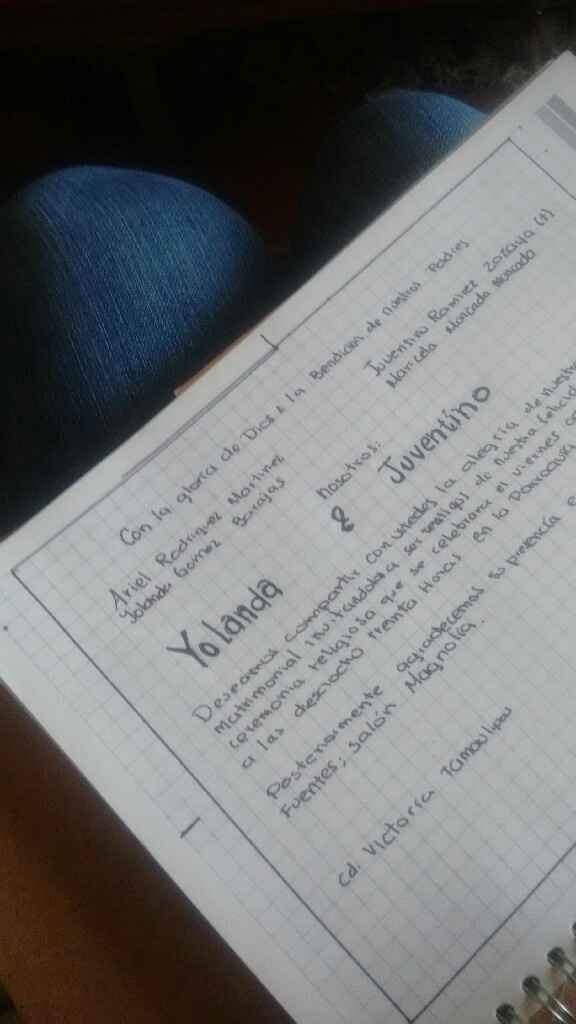 Con la gloria de Dios & la Bendición de nuestros Padres
Ariel Rodriguez Martinez
Yolanda Gomez Barajas
Juventino Ramirez Zozaya (†)
Marcela Moncada Moncada
nosotros:
Yolanda & Juventino
Deseamos compartir con ustedes la alegría de nuestra
matrimonial invitandolos a ser testigos de nuestra
ceremonia religiosa que se celebrara el viernes
a las dieciocho treinta Horas en la Parroquia
Posteriormente agradecemos su presencia
Fuentes; salón Magnolia.
cd. Victoria Tamaulipas